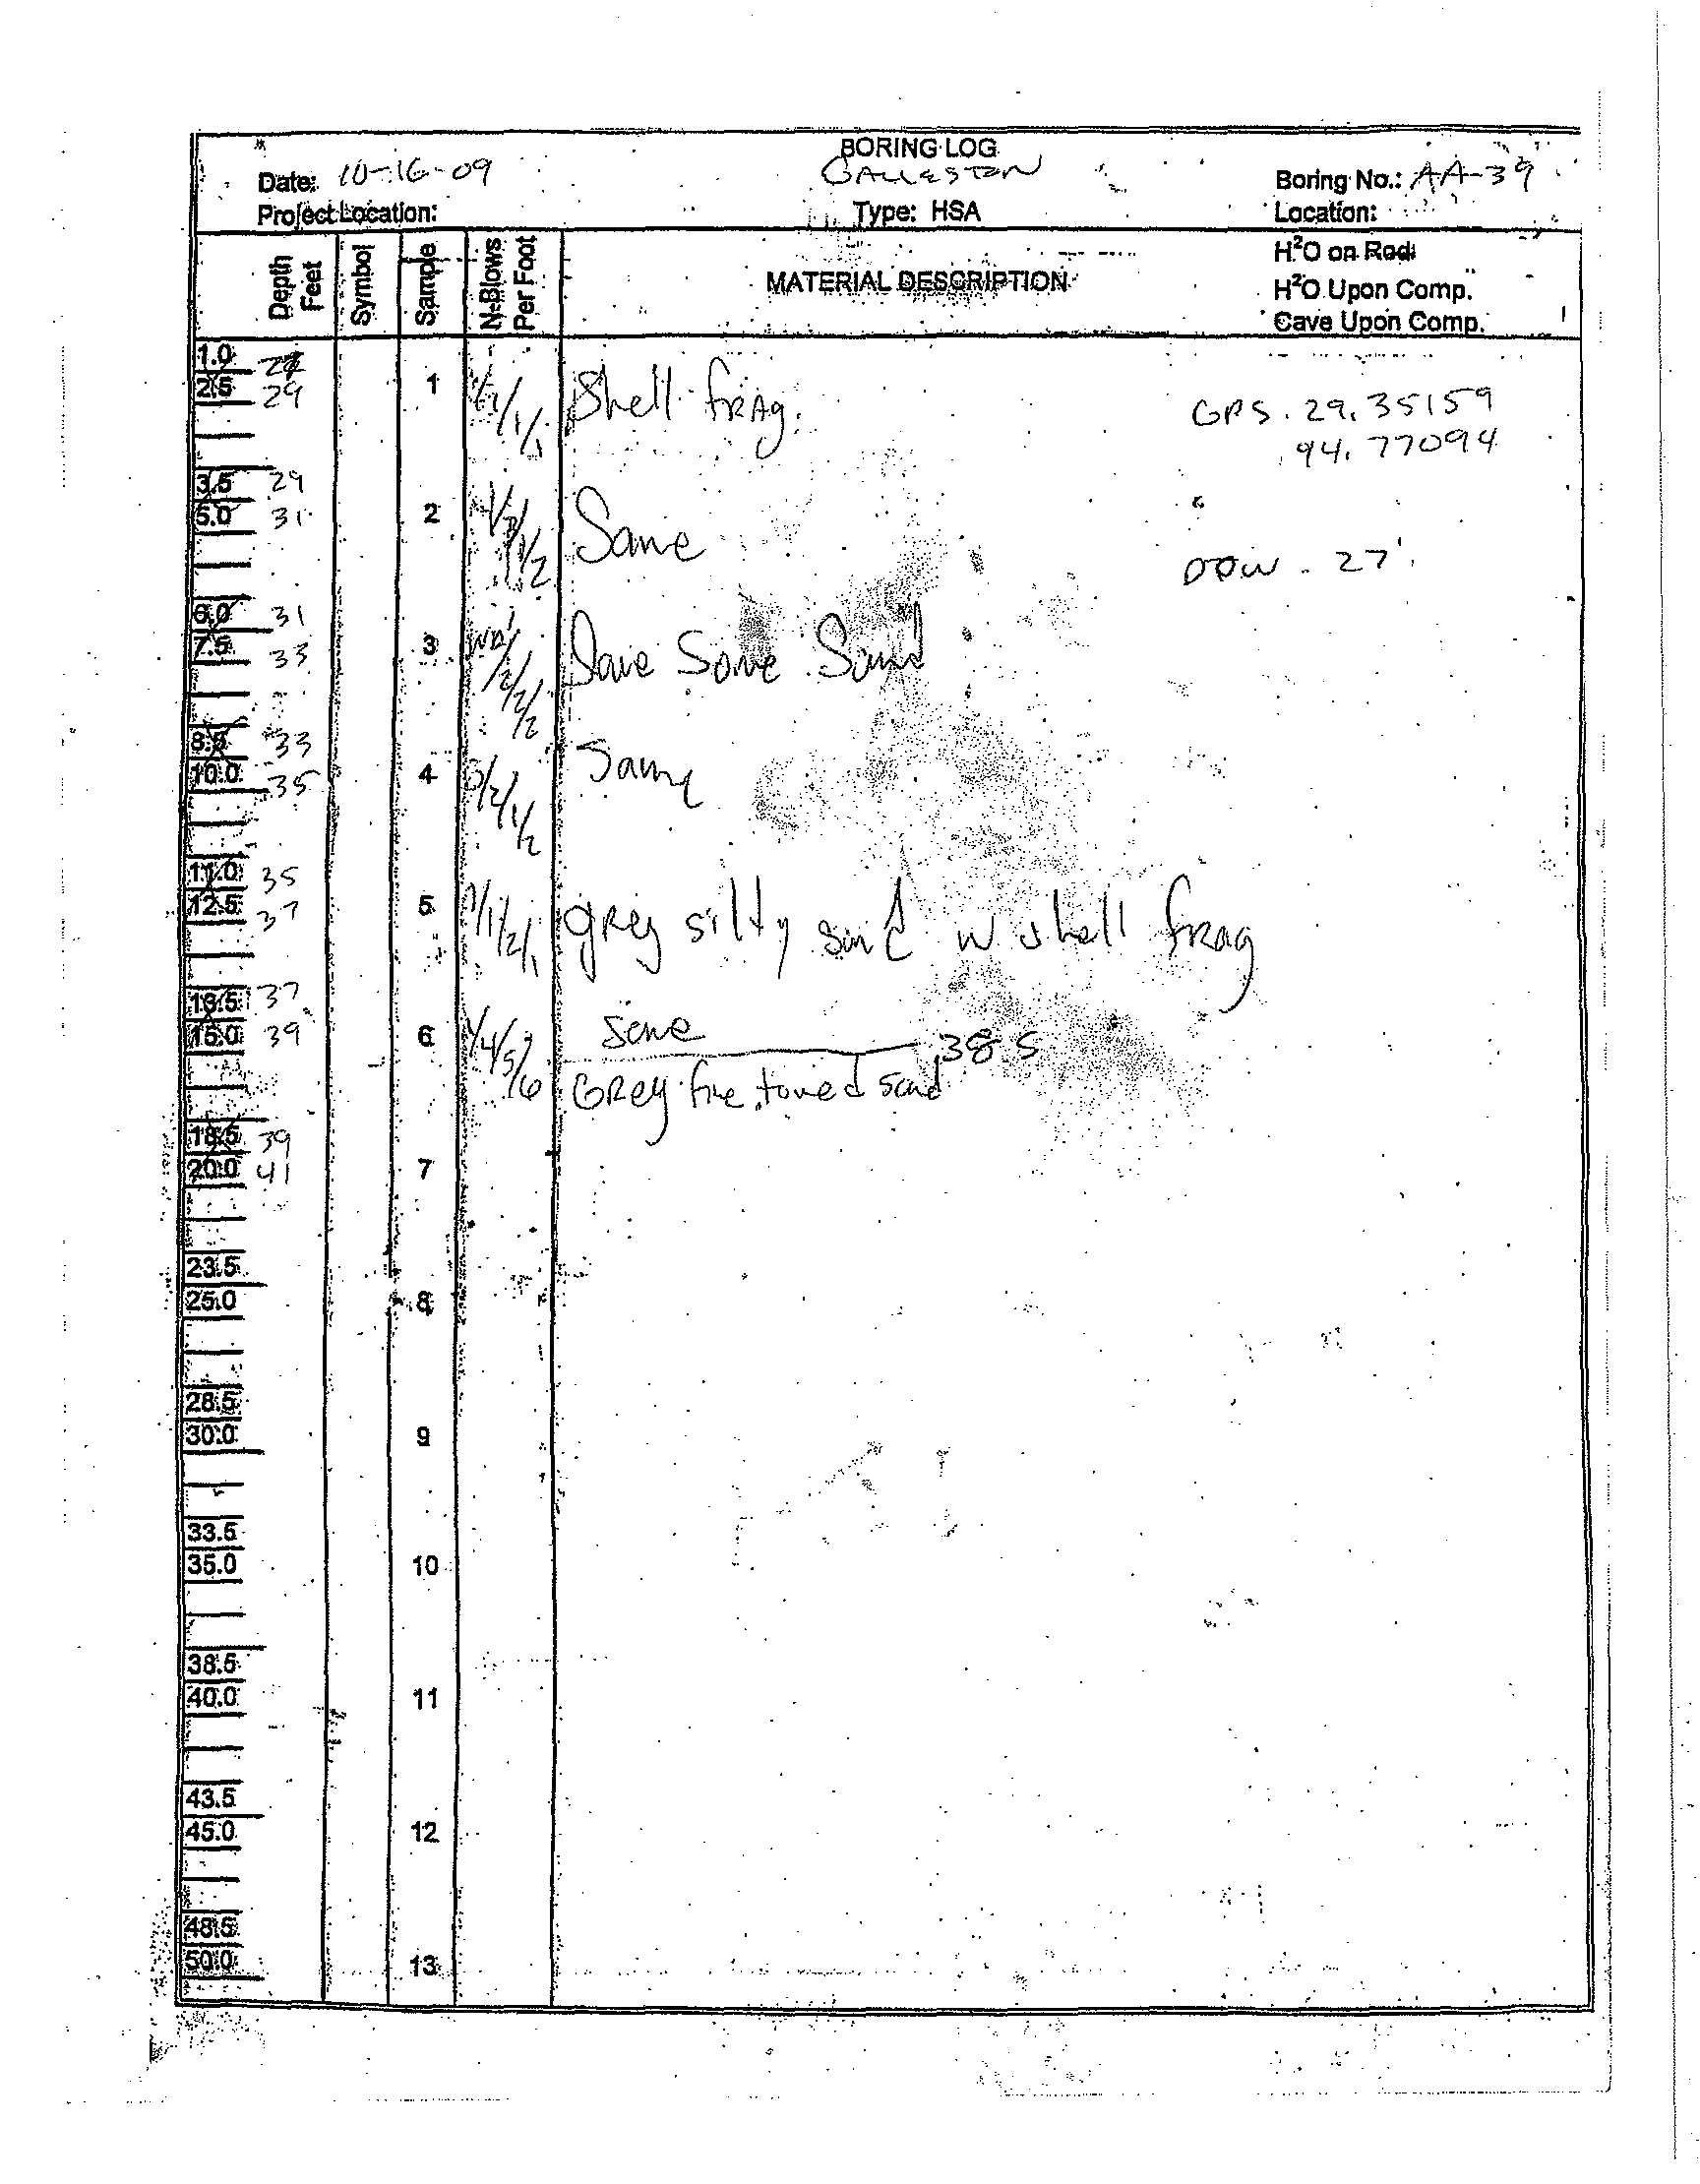 BORING LOG
Date: 10-16-09 GALVESTON Boring No.: AA-39
Project Location: Type: HSA Location:
Depth Feet Symbol Sample N-Blows Per Foot MATERIAL DESCRIPTION
H²O on Rod
H²O Upon Comp.
Cave Upon Comp.
1.0 27
2.5 29 1 1/1/1/1 Shell frag. GPS. 29.35159
94.77094
3.5 29
5.0 31 2 1/2 Same
DOW. 27'
6.0 31
7.5 33 3 /2/2/2 Same Some Sand
8.5 33
10.0 35 4 /2/1/2 Same
11.0 35
12.5 37 5 1/1/2/1 grey silty sand w shell frag
13.5 37
15.0 39 6 /4/5/6 Same 38.5
Grey fine sand
18.5 39
20.0 41 7
23.5
25.0 8
28.5
30.0 9
33.5
35.0 10
38.5
40.0 11
43.5
45.0 12
48.5
50.0 13